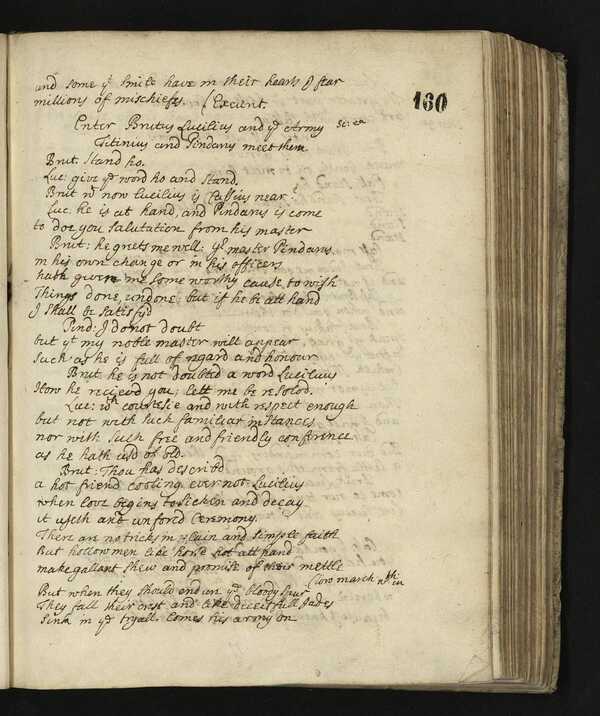 and some yt smile have in their hearts I fear
millions of mischiefes. (Exeunt.
160
Enter Brutus Lucilius and ye Army Sc: 2a
Titinius and Pindarus meet them
Brut: Stand ho.
Luc: give ye word ho and Stand.
Brut wt now Lucilius is Cassius near?
Luc. he is at hand, and Pindarus is come
to doe you Salutation from his master
Brut: he greets me well: yr master Pindarus
in his own change or in his officers
hath given me some worthy cause to wish
Things done, undone; but if he be att hand
I shall be satisfyd
Pind: I do not doubt
but yt my noble master will appear
Such as he is full of regard and honour
Brut he is not doubted a word Lucilius
How he recievd you; lett me be resolvd.
Luc: wth courtesie and with respect enough
but not with such familiar instances
nor with Such free and friendly conference
as he hath usd of old.
Brut: Thou has describd
a hot friend cooling. ever not: Lucilius
when love begins to sicken and decay
it useth an unforced Ceremony.
There are no tricks in plain and simple faith
But hollow men like horse hot att hand
make gallant shew and promise of their mettle
(low march within
But when they should endure ye bloody spur
They fall their crest and like deceitfull Jades
Sink in ye tryall. Comes his army on